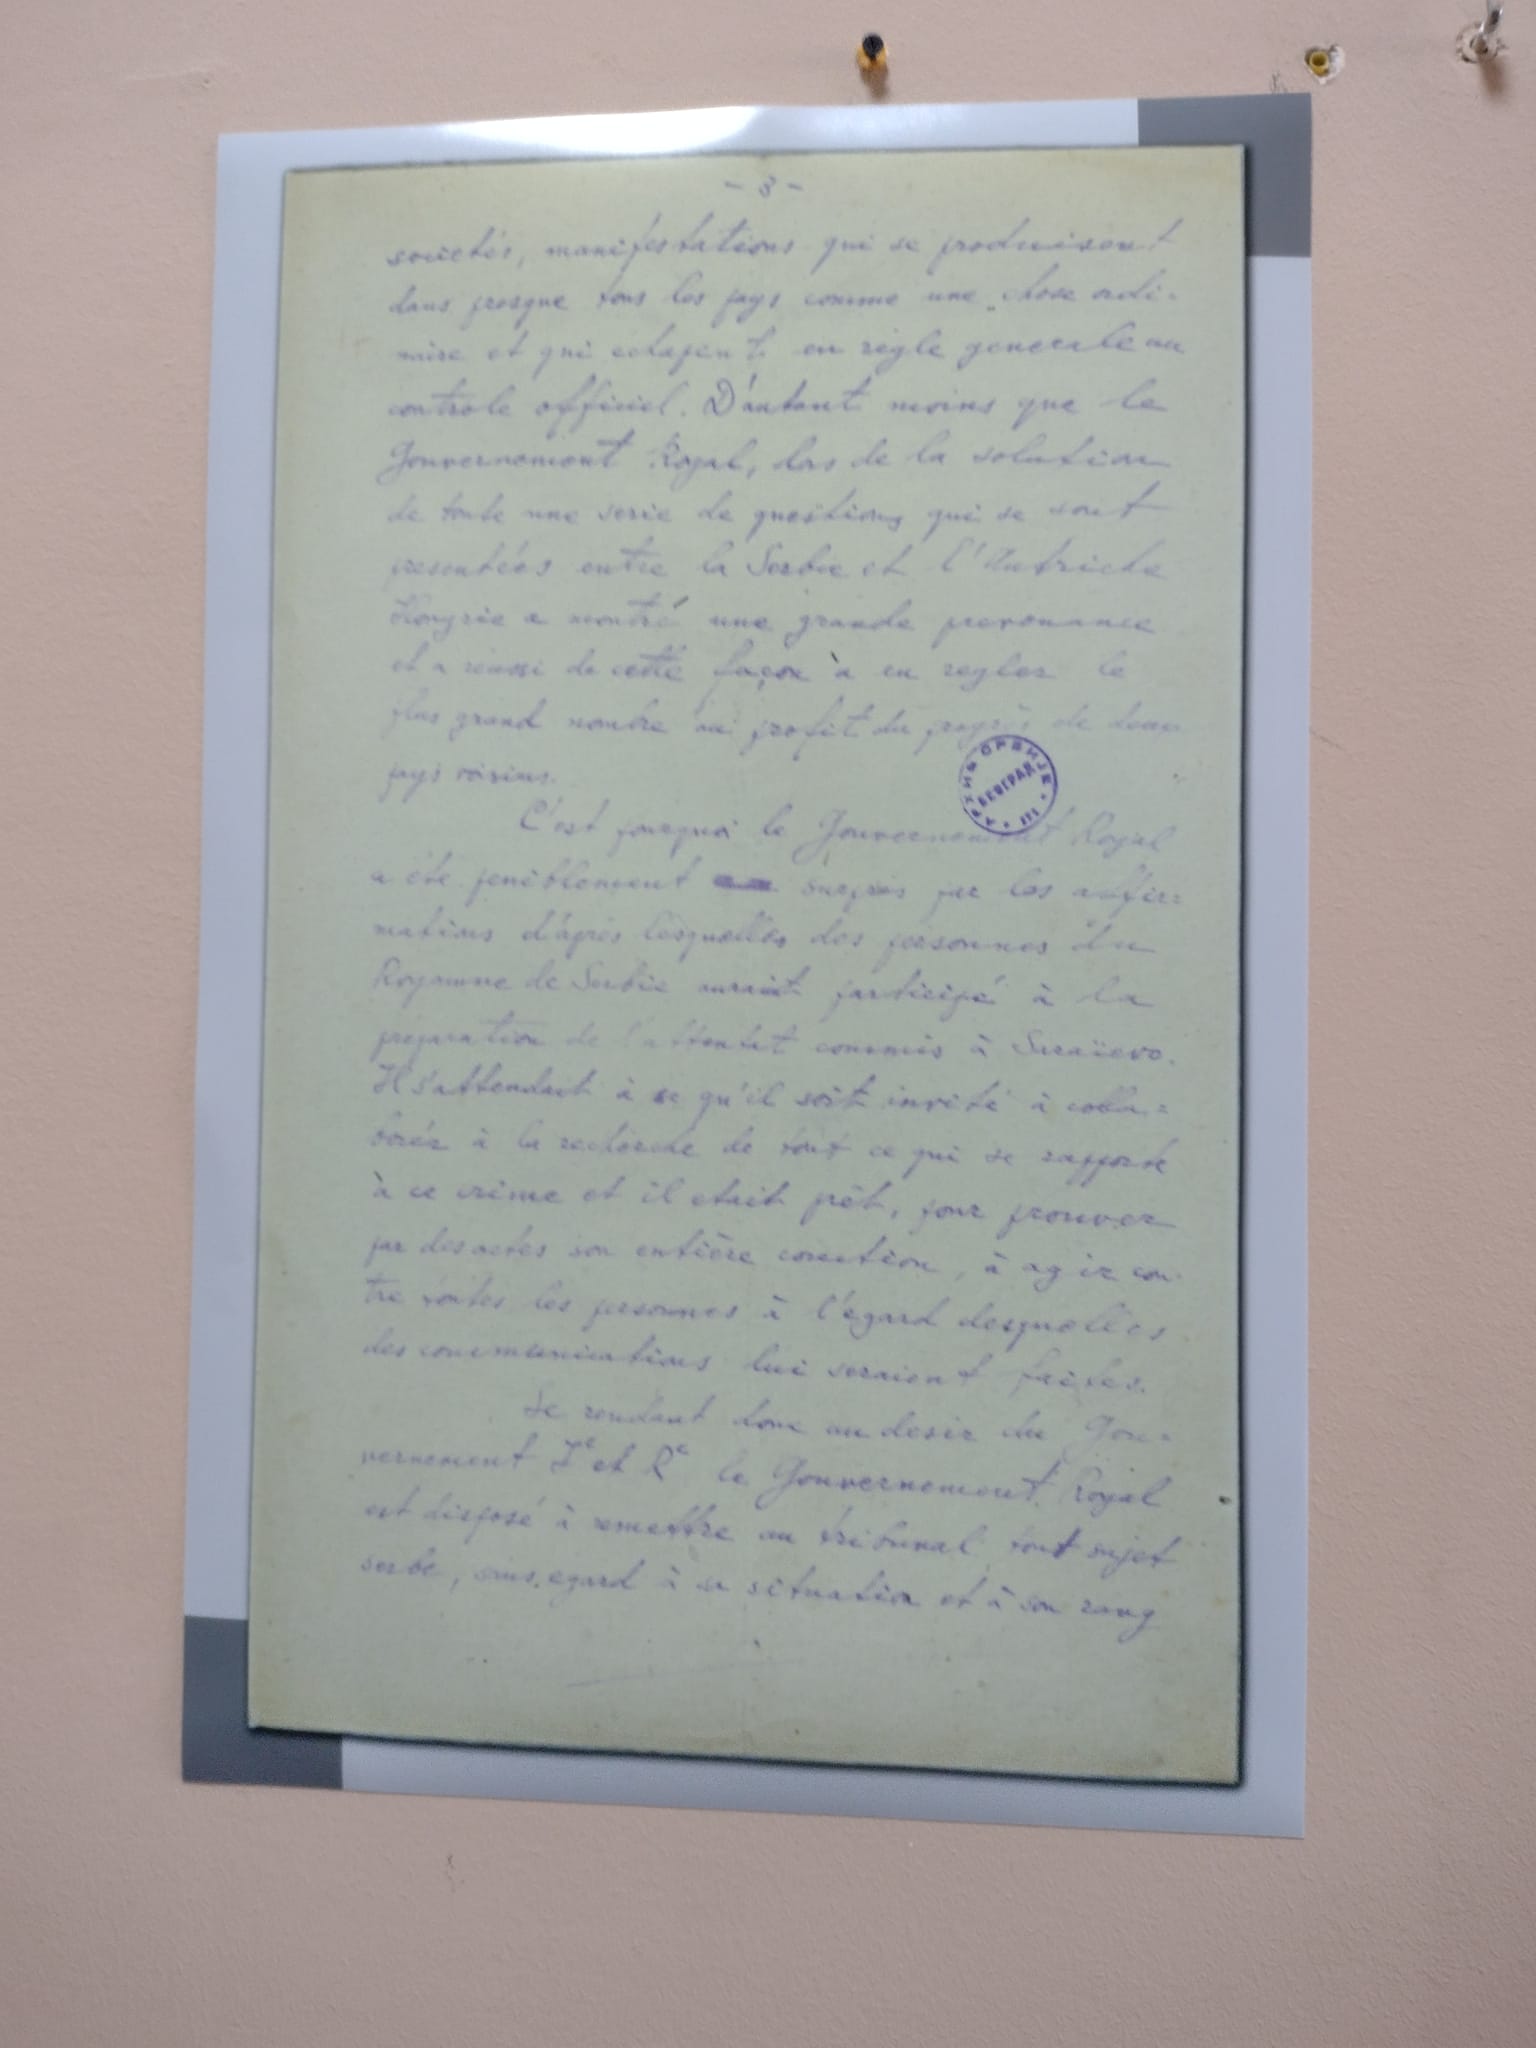 - 3 -
societés, manifestations qui se produisent
dans presque tous les pays comme une chose ordi-
naire et qui echapent en règle generale au
controle officiel. D'autant moins que le
Gouvernement Royal, lors de la solution
de toute une serie de questions qui se sont
presentées entre la Serbie et l'Autriche
Hongrie a montré une grande prevenance
et a réussi de cette façon à en regler le
plus grand nombre au profit du progrès de deux
pays voisins.
C'est pourquoi le Gouvernement Royal
a été peniblement surpris par les affir-
mations d'après lesquelles des personnes du
Royaume de Serbie auraint participé à la
préparation de l'attentat commis à Saraïevo.
Il s'attendait à ce qu'il soit invité à colla-
borer à la recherche de tout ce qui se rapporte
à ce crime et il etait prêt, pour prouver
par des actes son entière corection, à agir con-
tre toutes les personnes à l'égard desquelles
des communications lui seraient faites.
Se rendant donc au desir du Gou-
vernement I^e et R^e le Gouvernement Royal
est disposé à remettre au tribunal tout sujet
serbe, sans egard à sa situation et à son rang
АРХИВ СРБИЈЕ
БЕОГРАД
III